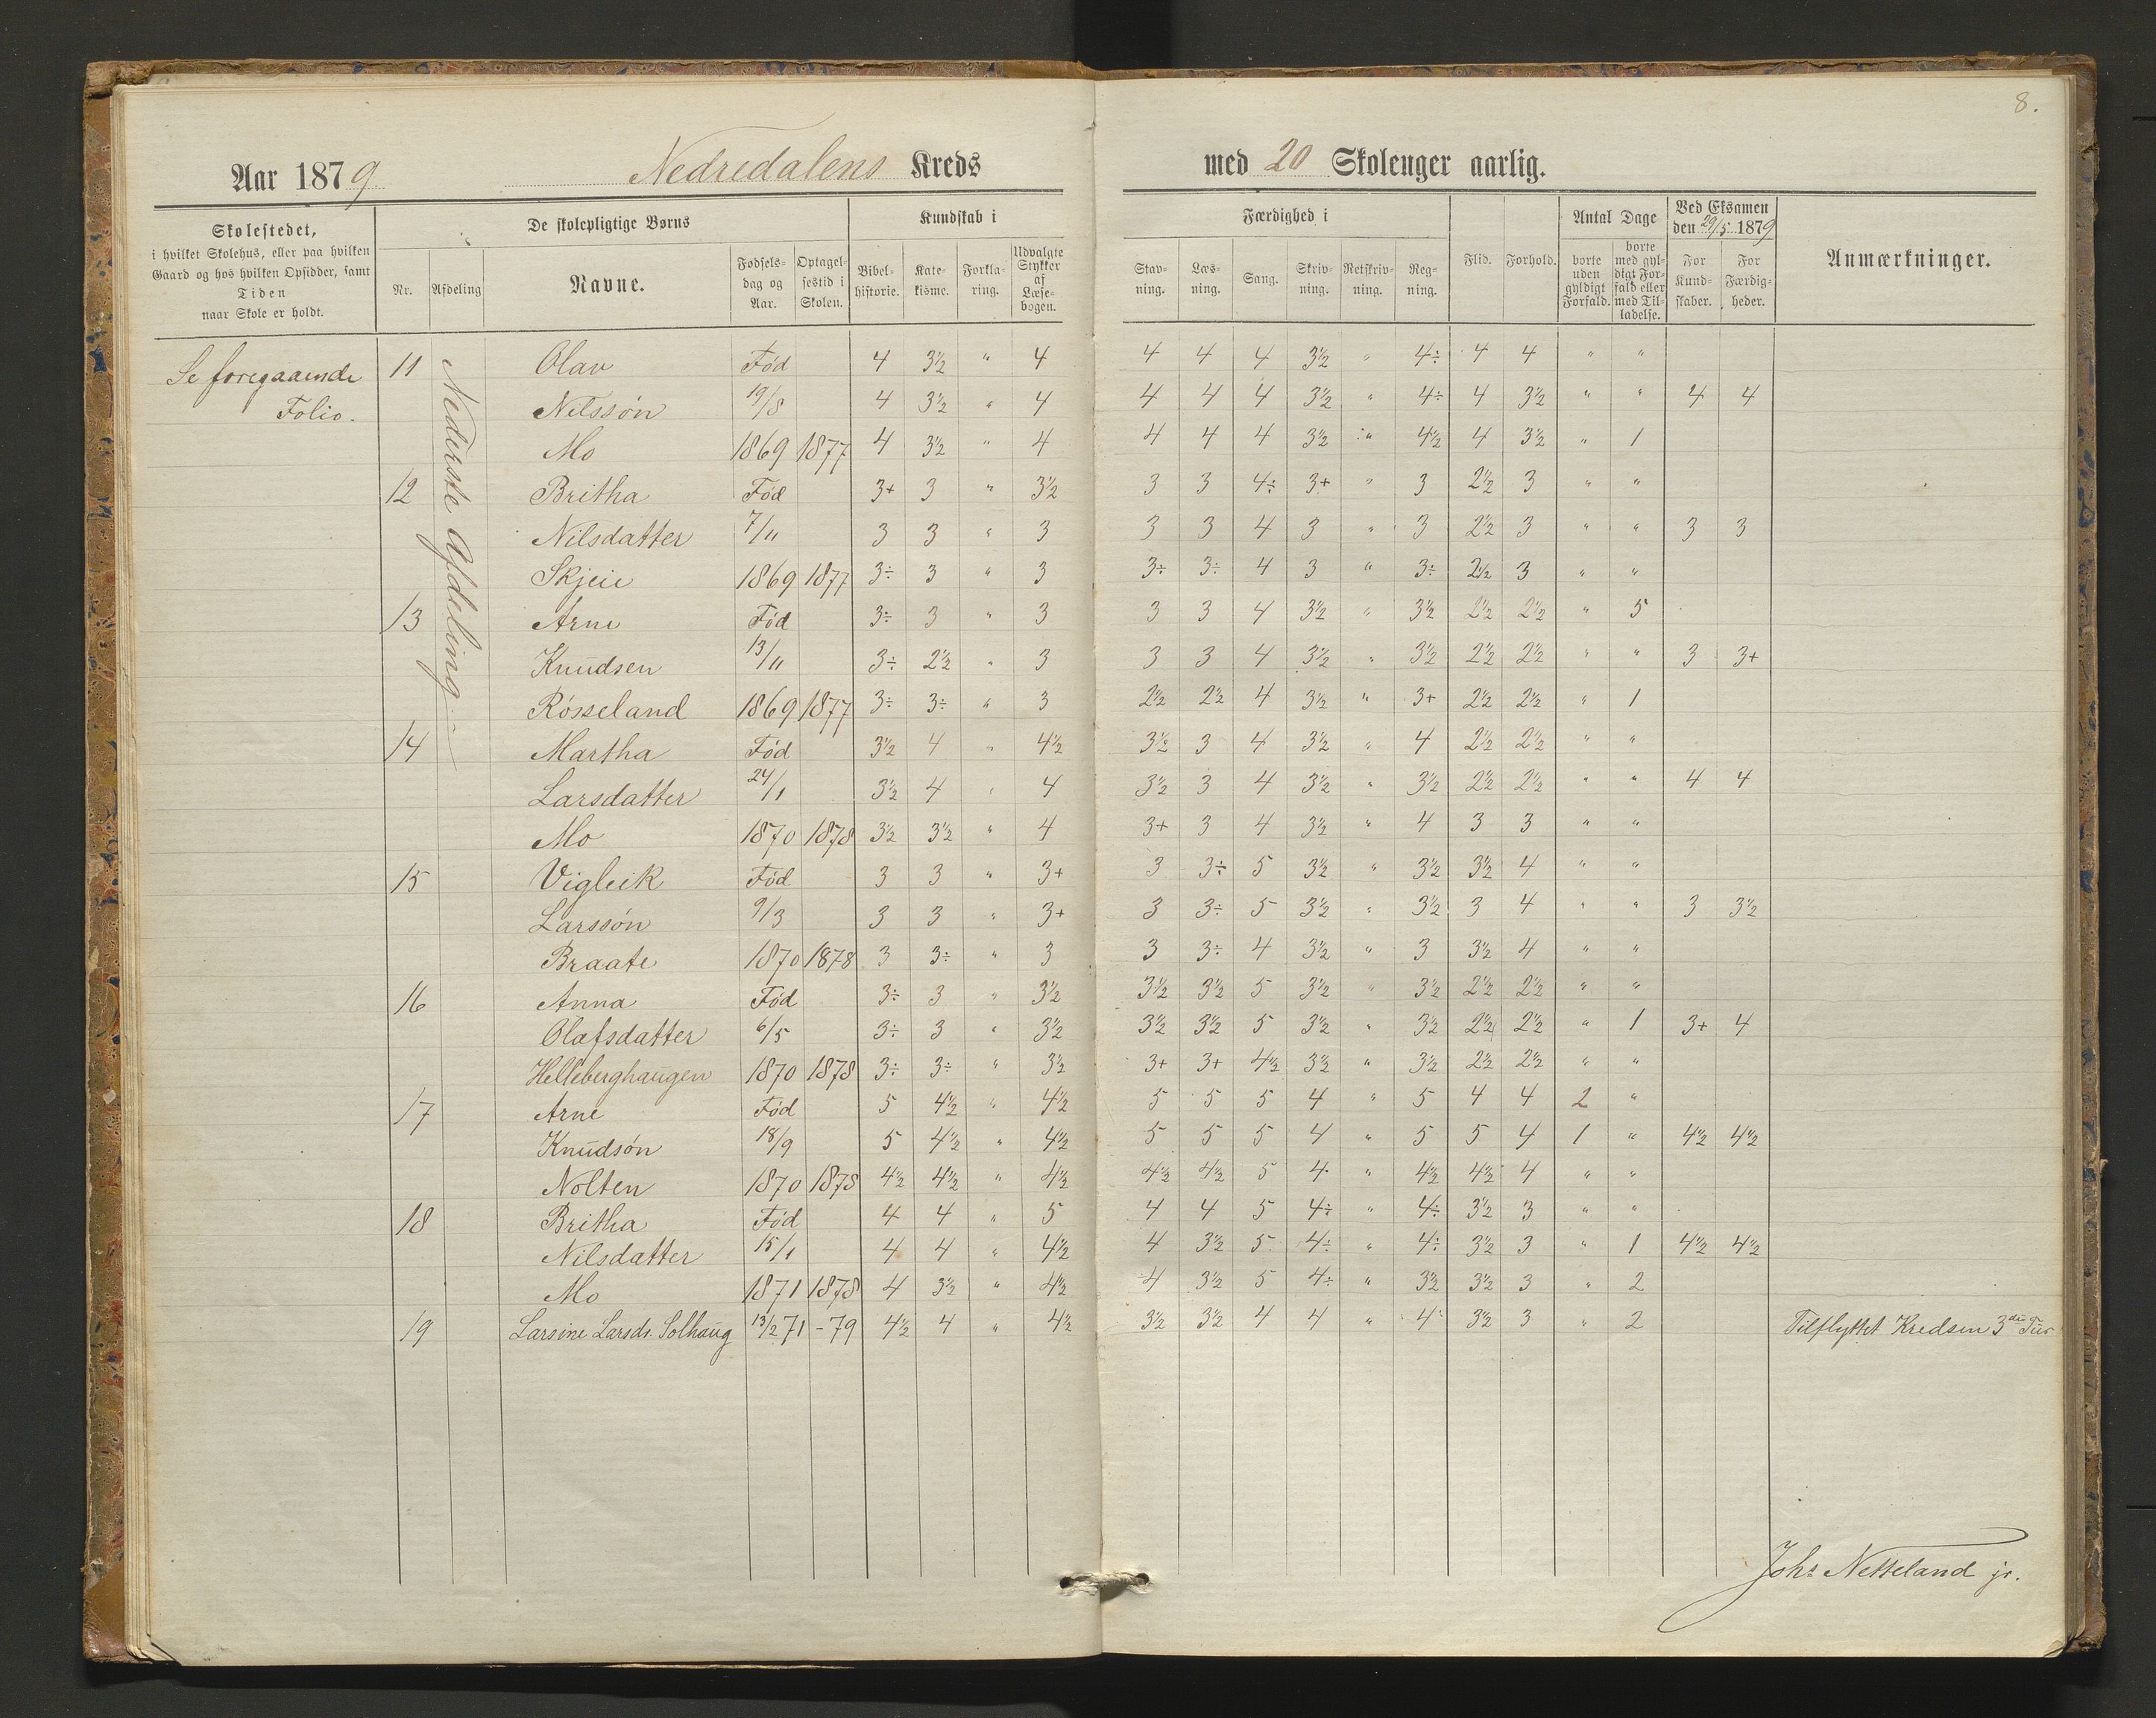 8.
Aar 1879 Nedredalens Kreds med 20 Skolenger aarlig.
Skolestedet, i hvilket Skolehus, eller paa hvilken Gaard og hos hvilken Opsidder, samt Tiden naar Skole er holdt.
De skolepligtige Børns
Nr. Afdeling Navne. Fødselsdag og Aar. Optagelsestid i Skolen.
Kundskab i
Bibelhistorie. Katekisme. Forklaring. Udvalgte Stykker af Læsebogen.
Færdighed i
Stavning. Læsning. Sang. Skrivning. Retskrivning. Regning.
Flid. Forhold.
Antal Dage
borte uden gyldigt Forfald. borte med gyldigt Forfald eller med Tilladelse.
Ved Eksamen den 29/5 1879
For Kundskaber. For Færdigheder.
Anmærkninger.
Se foregaaende
Folio.
Nederste Afdeling.
11 Olav Fød 4 3½ " 4 4 4 4 3½ " 4÷ 4 4 " "
Nilssøn 19/8 4 3½ " 4 4 4 4 3½ " 4÷ 4 3½ " " 4 4
Mo 1869 1877 4 3½ " 4 4 4 4 3½ " 4½ 4 3½ " 1
12 Britha Fød 3+ 3 " 3½ 3 3 4÷ 3+ " 3 2½ 3 " "
Nilsdatter 7/11 3 3 " 3 3 3 4 3 " 3 2½ 3 " " 3 3
Skjeie 1869 1877 3÷ 3 " 3 3÷ 3÷ 4 3 " 3÷ 2½ 3 " "
13 Arne Fød 3÷ 3 " 3 3 3 4 3½ " 3½ 2½ 2½ " 5
Knudsen 13/11 3÷ 2½ " 3 3 3 4 3½ " 3½ 2½ 2½ " " 3 3+
Røsseland 1869 1877 3÷ 3÷ " 3 2½ 2½ 4 3½ " 3+ 2½ 2½ " 1
14 Martha Fød 3½ 4 " 4½ 3½ 3 4 3½ " 4 2½ 2½ " "
Larsdatter 24/1 3½ 4 " 4 3½ 3 4 3½ " 3½ 2½ 2½ " " 4 4
Mo 1870 1878 3½ 3½ " 4 3+ 3 4 3½ " 4 3 3 " "
15 Vigleik Fød 3 3 " 3+ 3 3÷ 5 3½ " 3½ 3½ 4 " "
Larssøn 9/3 3 3 " 3+ 3 3÷ 5 3½ " 3½ 3 4 " " 3 3½
Braate 1870 1878 3 3÷ " 3 3 3÷ 4 3½ " 3 3½ 4 " "
16 Anna Fød 3÷ 3 " 3½ 3½ 3½ 5 3½ " 3½ 2½ 2½ " "
Olafsdatter 6/5 3÷ 3 " 3½ 3½ 3½ 5 3½ " 3½ 2½ 2½ " 1 3+ 4
Helleberghaugen 1870 1878 3÷ 3÷ " 3½ 3+ 3+ 4½ 3½ " 3½ 2½ 2½ " "
17 Arne Fød 5 4½ " 4½ 5 5 5 4 " 5 4 4 2 "
Knudsøn 18/9 5 4½ " 4½ 5 5 5 4 " 5 5 4 1 " 4½ 4½
Nolten 1870 1878 4½ 4½ " 4½ 4½ 4½ 5 4 " 4½ 4½ 4 " "
18 Britha Fød 4 4 " 5 4 4 5 4÷ " 4÷ 3½ 3 " "
Nilsdatter 15/1 4 4 " 4½ 4 3½ 5 4÷ " 4÷ 3½ 3 " 1 4½ 4½
Mo 1871 1878 4 3½ " 4½ 4 3½ 5 4÷ " 3½ 3½ 3 " 2
19 Larsine Larsdr. Solhaug 13/2 71 -79 4½ 4 " 4½ 3½ 3½ 4 4 " 4 3½ 3 " 2 Tilflyttet Kredsen 3die Tur
Johs Netteland jr.